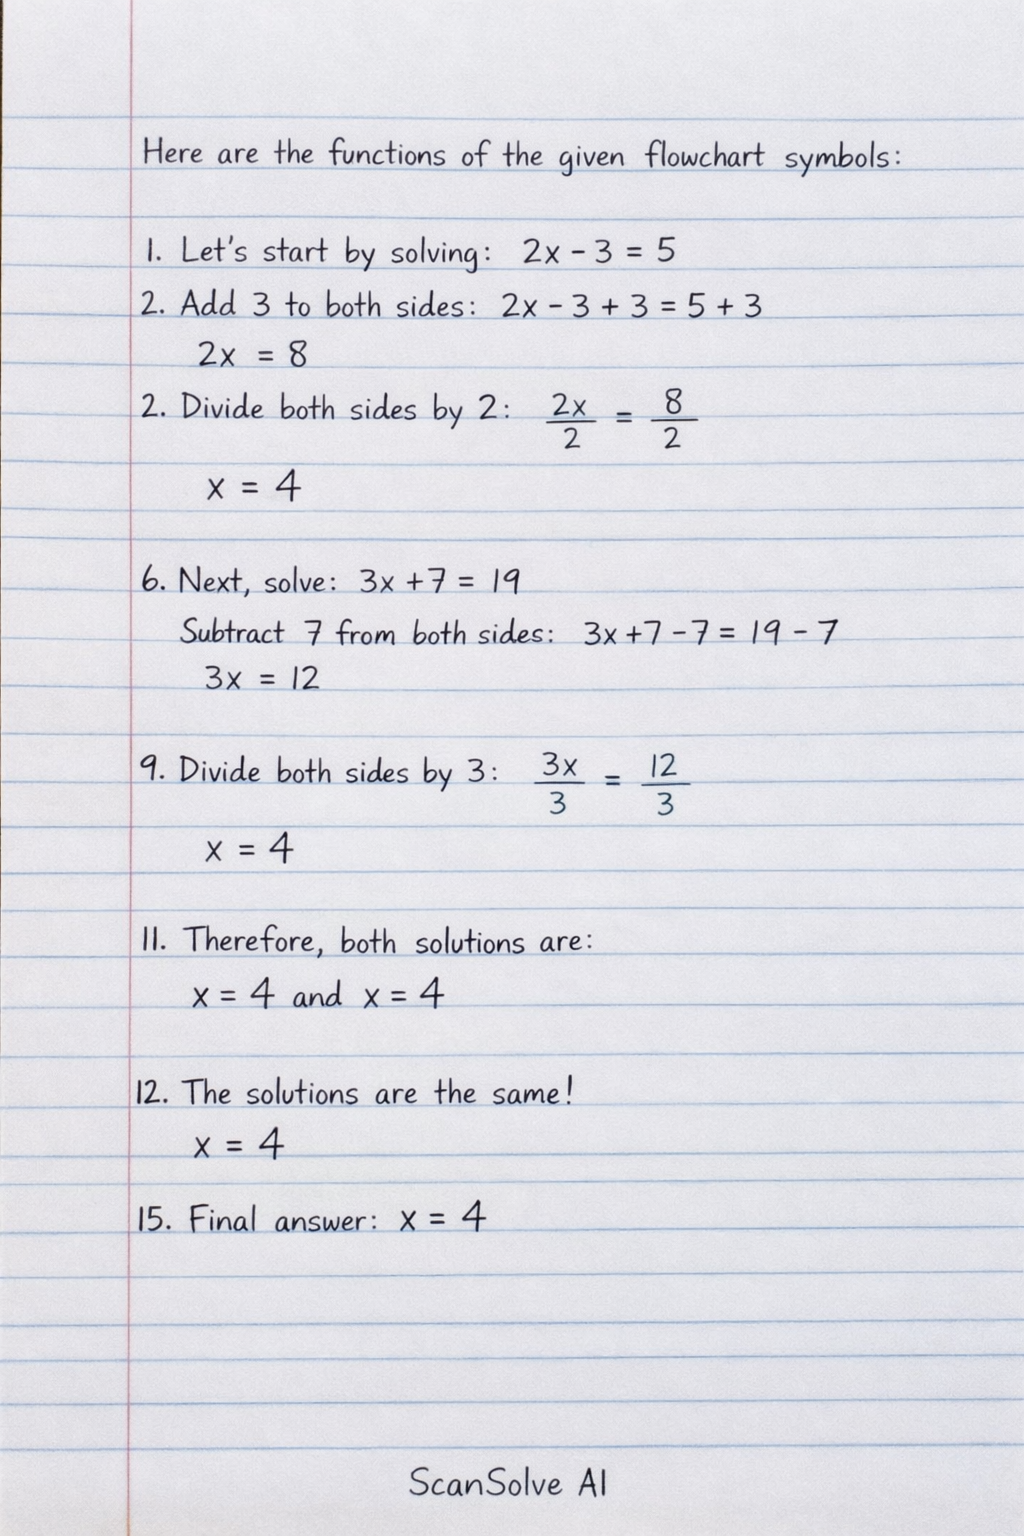 Here are the functions of the given flowchart symbols:
1. Let's start by solving: 2x - 3 = 5
2. Add 3 to both sides: 2x - 3 + 3 = 5 + 3
2x = 8
2. Divide both sides by 2: 2x/2 = 8/2
x = 4
6. Next, solve: 3x + 7 = 19
Subtract 7 from both sides: 3x + 7 - 7 = 19 - 7
3x = 12
9. Divide both sides by 3: 3x/3 = 12/3
x = 4
11. Therefore, both solutions are:
x = 4 and x = 4
12. The solutions are the same!
x = 4
15. Final answer: x = 4
ScanSolve AI